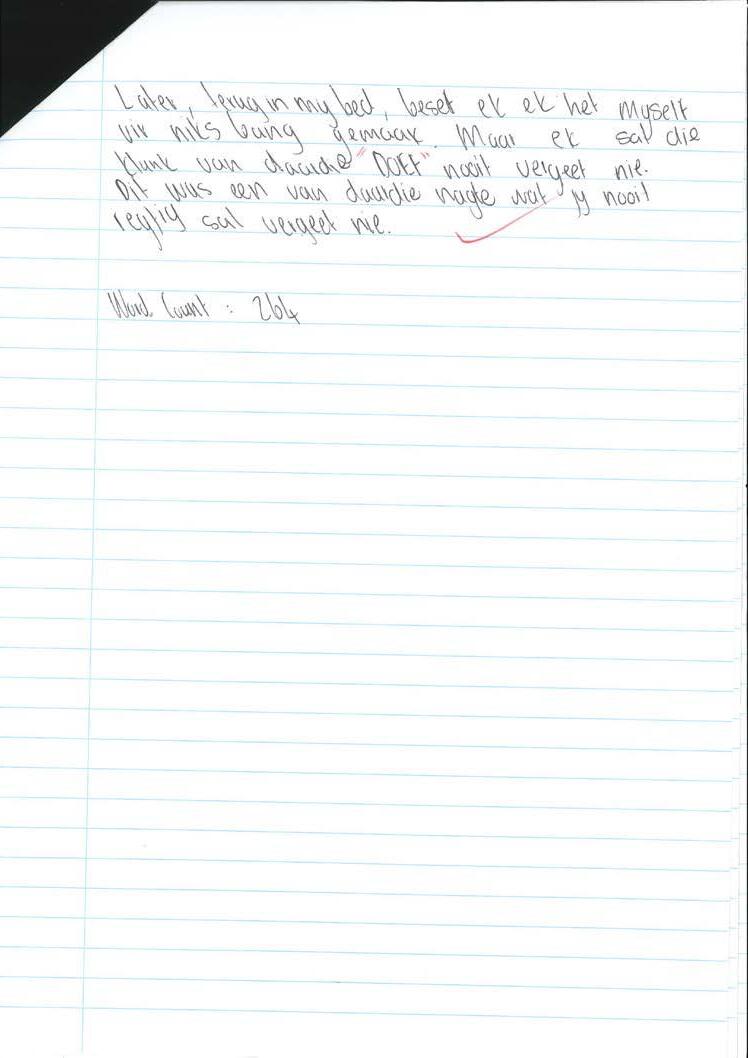 Later, terug in my bed, besef ek ek het myself
vir niks bang gemaak. Maar ek sal die
klank van daardie "DOEF" nooit vergeet nie.
Dit was een van daardie nagte wat jy nooit
regtig sal vergeet nie.
Word Count : 264